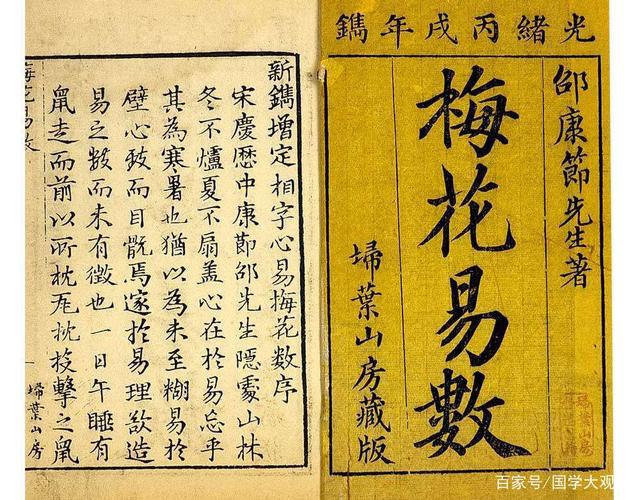 光緒丙戌年鐫
邵康節先生著
梅花易數
埽葉山房藏版
新鐫增定相字心易梅花數序
宋慶歷中康節邵先生隱處山林
冬不爐夏不扇蓋心在於易忘乎
其為寒暑也猶以為未至糊易於
壁心致而目翫焉邃於易理欲造
易之數而未有徵也一日午睡有
鼠走而前以所枕瓦枕投擊之鼠
梅花易數
一
埽葉山房
百家号/国学大观